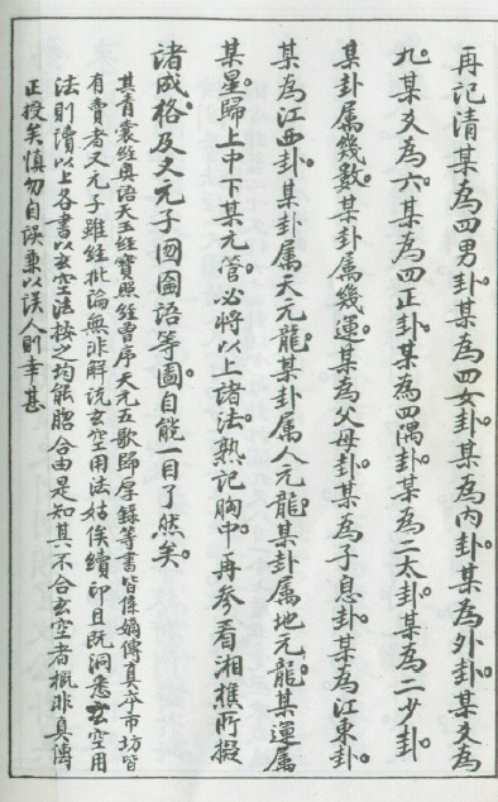 再記清某為四男卦。某為四女卦。某為內卦。某為外卦。某爻為
九。某爻為六。某為四正卦。某為四隅卦。某為二太卦。某為二少卦。
某卦屬幾數。某卦屬幾運。某為父母卦。某為子息卦。某為江東卦。
某為江西卦。某卦屬天元龍。某卦屬人元龍。某卦屬地元龍。某運屬
某星。歸上中下某元管。必將以上諸法。熟記胸中。再參看湘樵所擬
諸成格。及文元子圖語等圖。自能一目了然矣。
其青囊經奧語天玉經寶照經曾序天元五歌歸厚錄等書皆係嫡傳真本市坊皆
有賣者又元子雖經批論無非解說玄空用法姑俟續印且既洞悉玄空用
法則讀以上各書以玄空法按之均能脗合由是知其不合玄空者概非真傳
正授矣慎勿自誤兼以誤人則幸甚